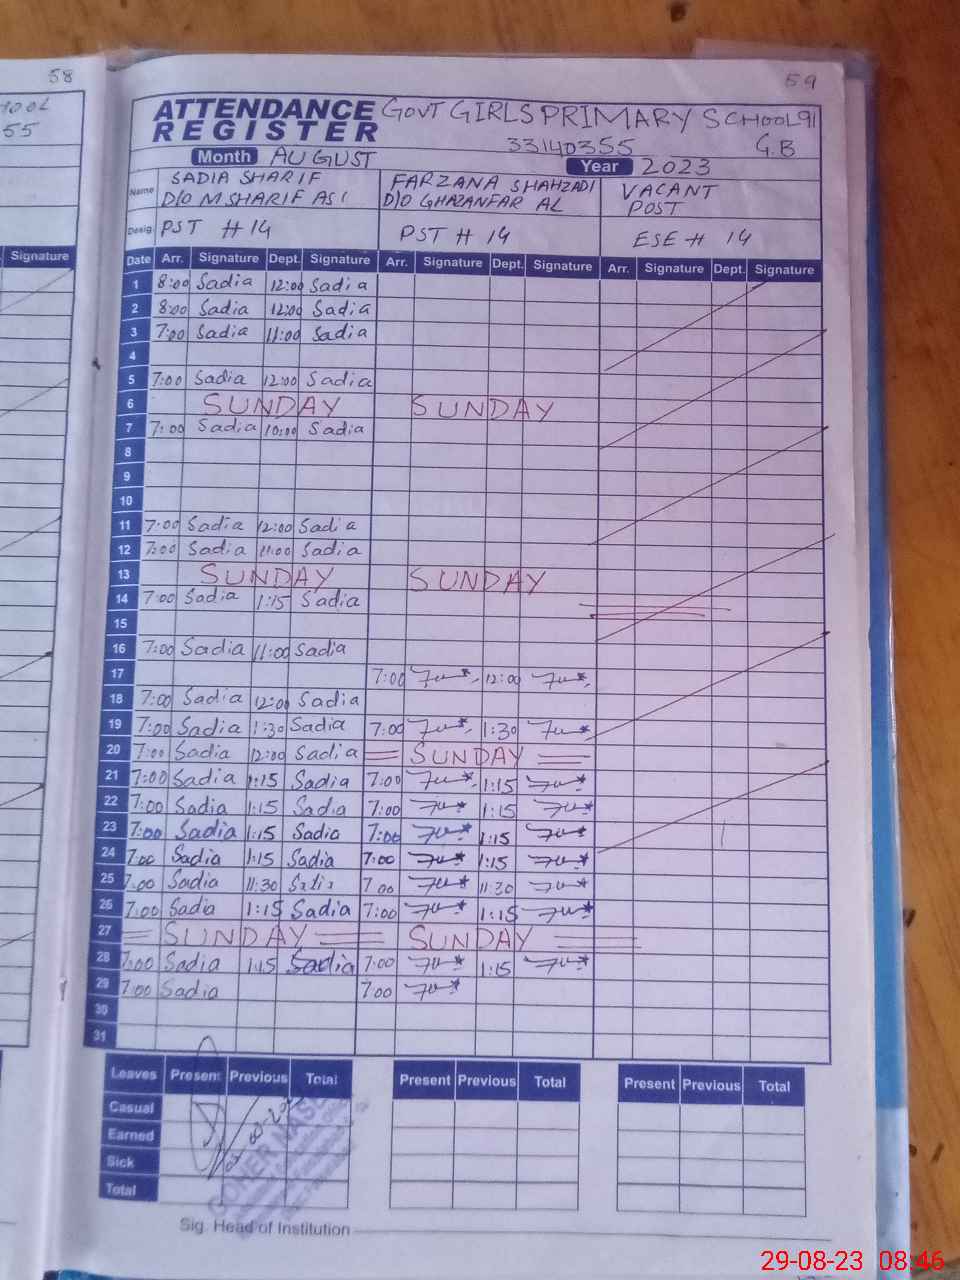 58
59
55
Signature
ATTENDANCE REGISTER
GOVT GIRLS PRIMARY SCHOOL 91
33140355 G.B
Month AUGUST Year 2023
Name SADIA SHARIF FARZANA SHAHZADI VACANT
D/O M SHARIF D/O GHAZANFAR AL POST
Desig. PST # 14 PST # 14 ESE # 14
Date Arr. Signature Dept. Signature Arr. Signature Dept. Signature Arr. Signature Dept. Signature
1 8:00 Sadia 12:00 Sadia
2 8:00 Sadia 12:00 Sadia
3 7:00 Sadia 11:00 Sadia
4
5 7:00 Sadia 12:00 Sadia
6 SUNDAY SUNDAY
7 7:00 Sadia 10:00 Sadia
8
9
10
11 7:00 Sadia 12:00 Sadia
12 7:00 Sadia 11:00 Sadia
13 SUNDAY SUNDAY
14 7:00 Sadia 1:15 Sadia
15
16 7:00 Sadia 11:00 Sadia
17 7:00 12:00
18 7:00 Sadia 12:00 Sadia
19 7:00 Sadia 1:30 Sadia 7:00 1:30
20 7:00 Sadia 12:00 Sadia SUNDAY
21 7:00 Sadia 1:15 Sadia 7:00 1:15
22 7:00 Sadia 1:15 Sadia 7:00 1:15
23 7:00 Sadia 1:15 Sadia 7:00 1:15
24 7:00 Sadia 1:15 Sadia 7:00 1:15
25 7:00 Sadia 11:30 Sadia 7:00 11:30
26 7:00 Sadia 1:15 Sadia 7:00 1:15
27 SUNDAY SUNDAY
28 7:00 Sadia 1:15 Sadia 7:00 1:15
29 7:00 Sadia 7:00
30
31
Leaves Present Previous Total Present Previous Total Present Previous Total
Casual
Earned
Sick
Total
Sig. Head of Institution
29-08-23 08:46